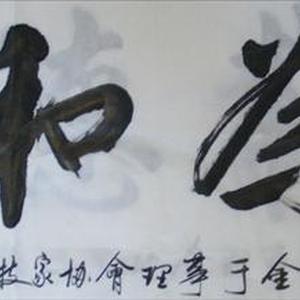 和
技家协會理事于金